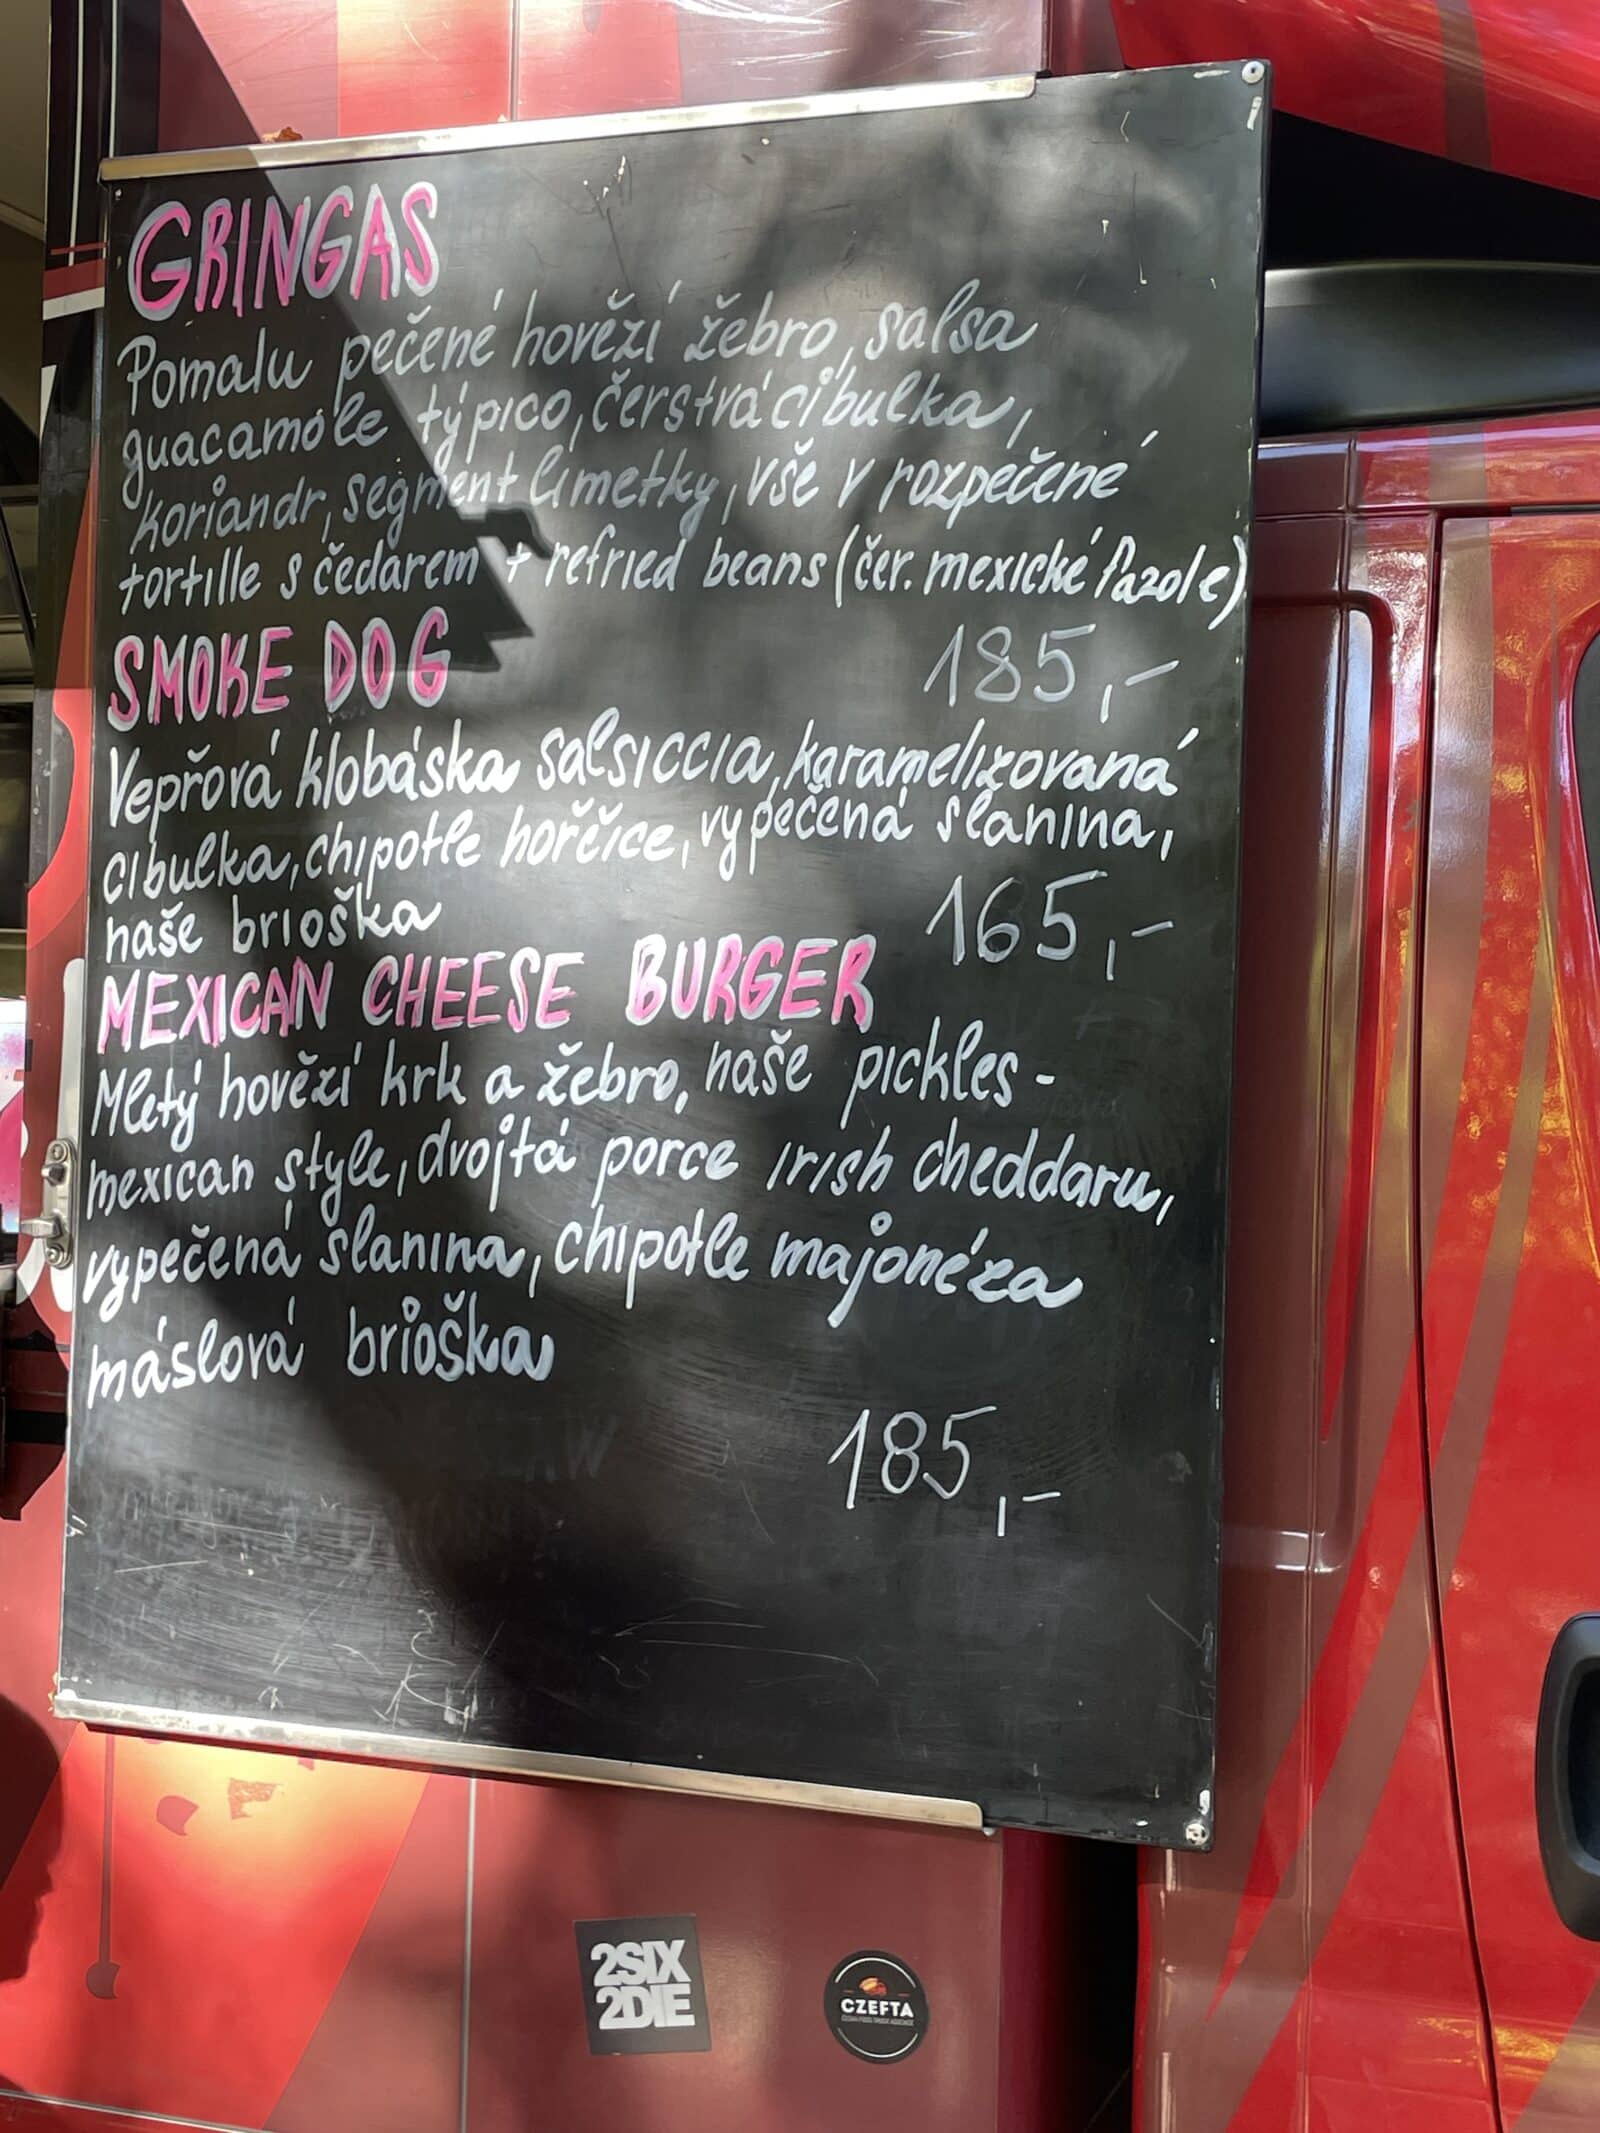 GRINGAS
Pomalu pečené hovězí žebro, salsa
guacamole týpico, čerstvá cibulka,
koriandr, segment limetky, vše v rozpečené
tortille s čedarem + refried beans (čer. mexické fazole)
185,-
SMOKE DOG
Vepřová klobáska salsiccia, karamelizovaná
cibulka, chipotle hořčice, vypečená slanina,
naše brioška
165,-
MEXICAN CHEESE BURGER
Mletý hovězí krk a žebro, naše pickles -
mexican style, dvojtá porce irish cheddaru,
vypečená slanina, chipotle majonéza
máslová brioška
185,-
2SIX
2DIE
CZEFTA